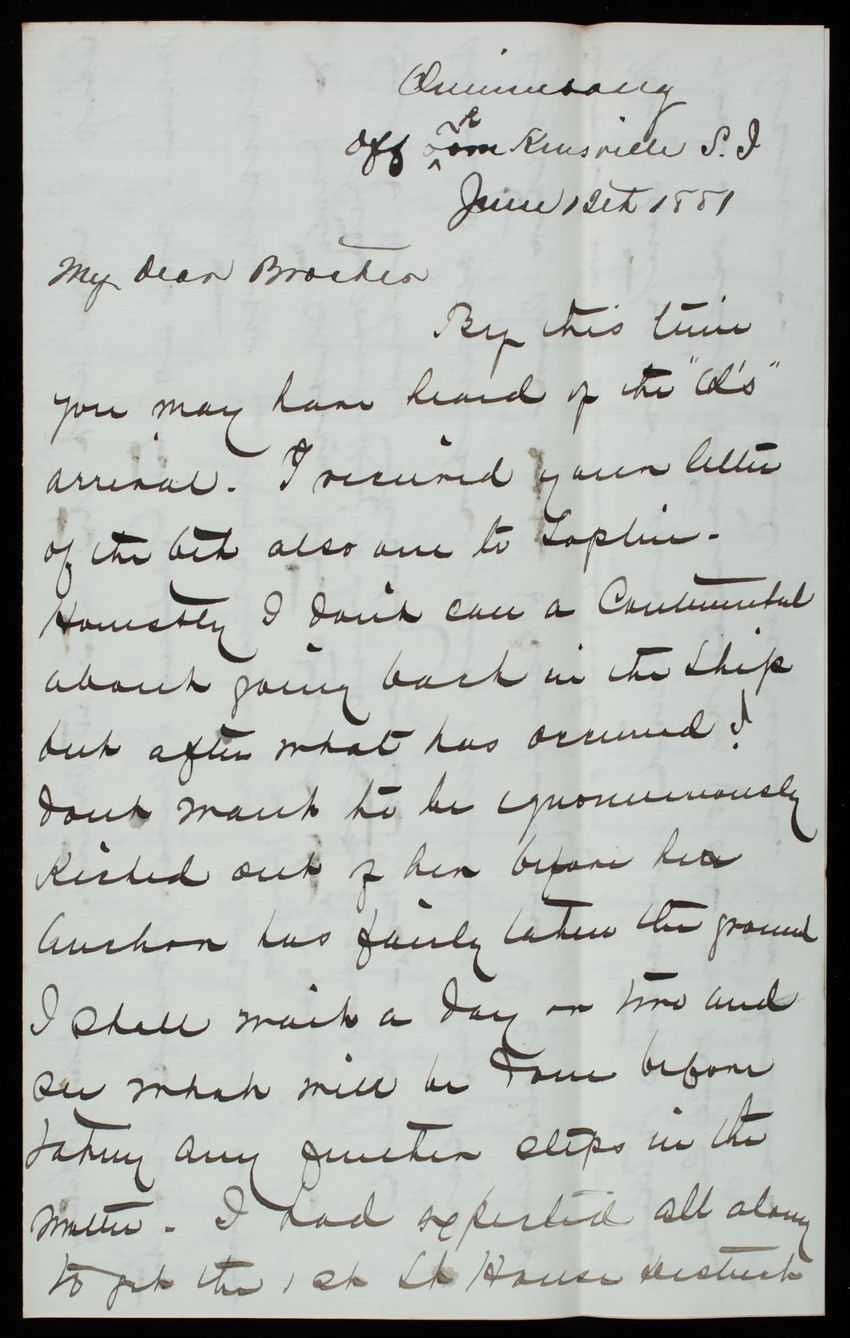 Quinnebaug
Off Tomkinsville S.I
June 12th 1881
My dear Brother
By this time
you may have heard of the "Q's"
arrival. I received your letter
of the 6th also one to Sophie.
Honestly I don't care a Continental
about going back in the Ship
but after what has occurred I
dont want to be ignominiously
Kicked out of her before her
Anchor has fairly taken the ground
I shall wait a day or two and
see what will be done before
taking any further steps in the
matter. I had expected all along
to get the 1st Lt House District